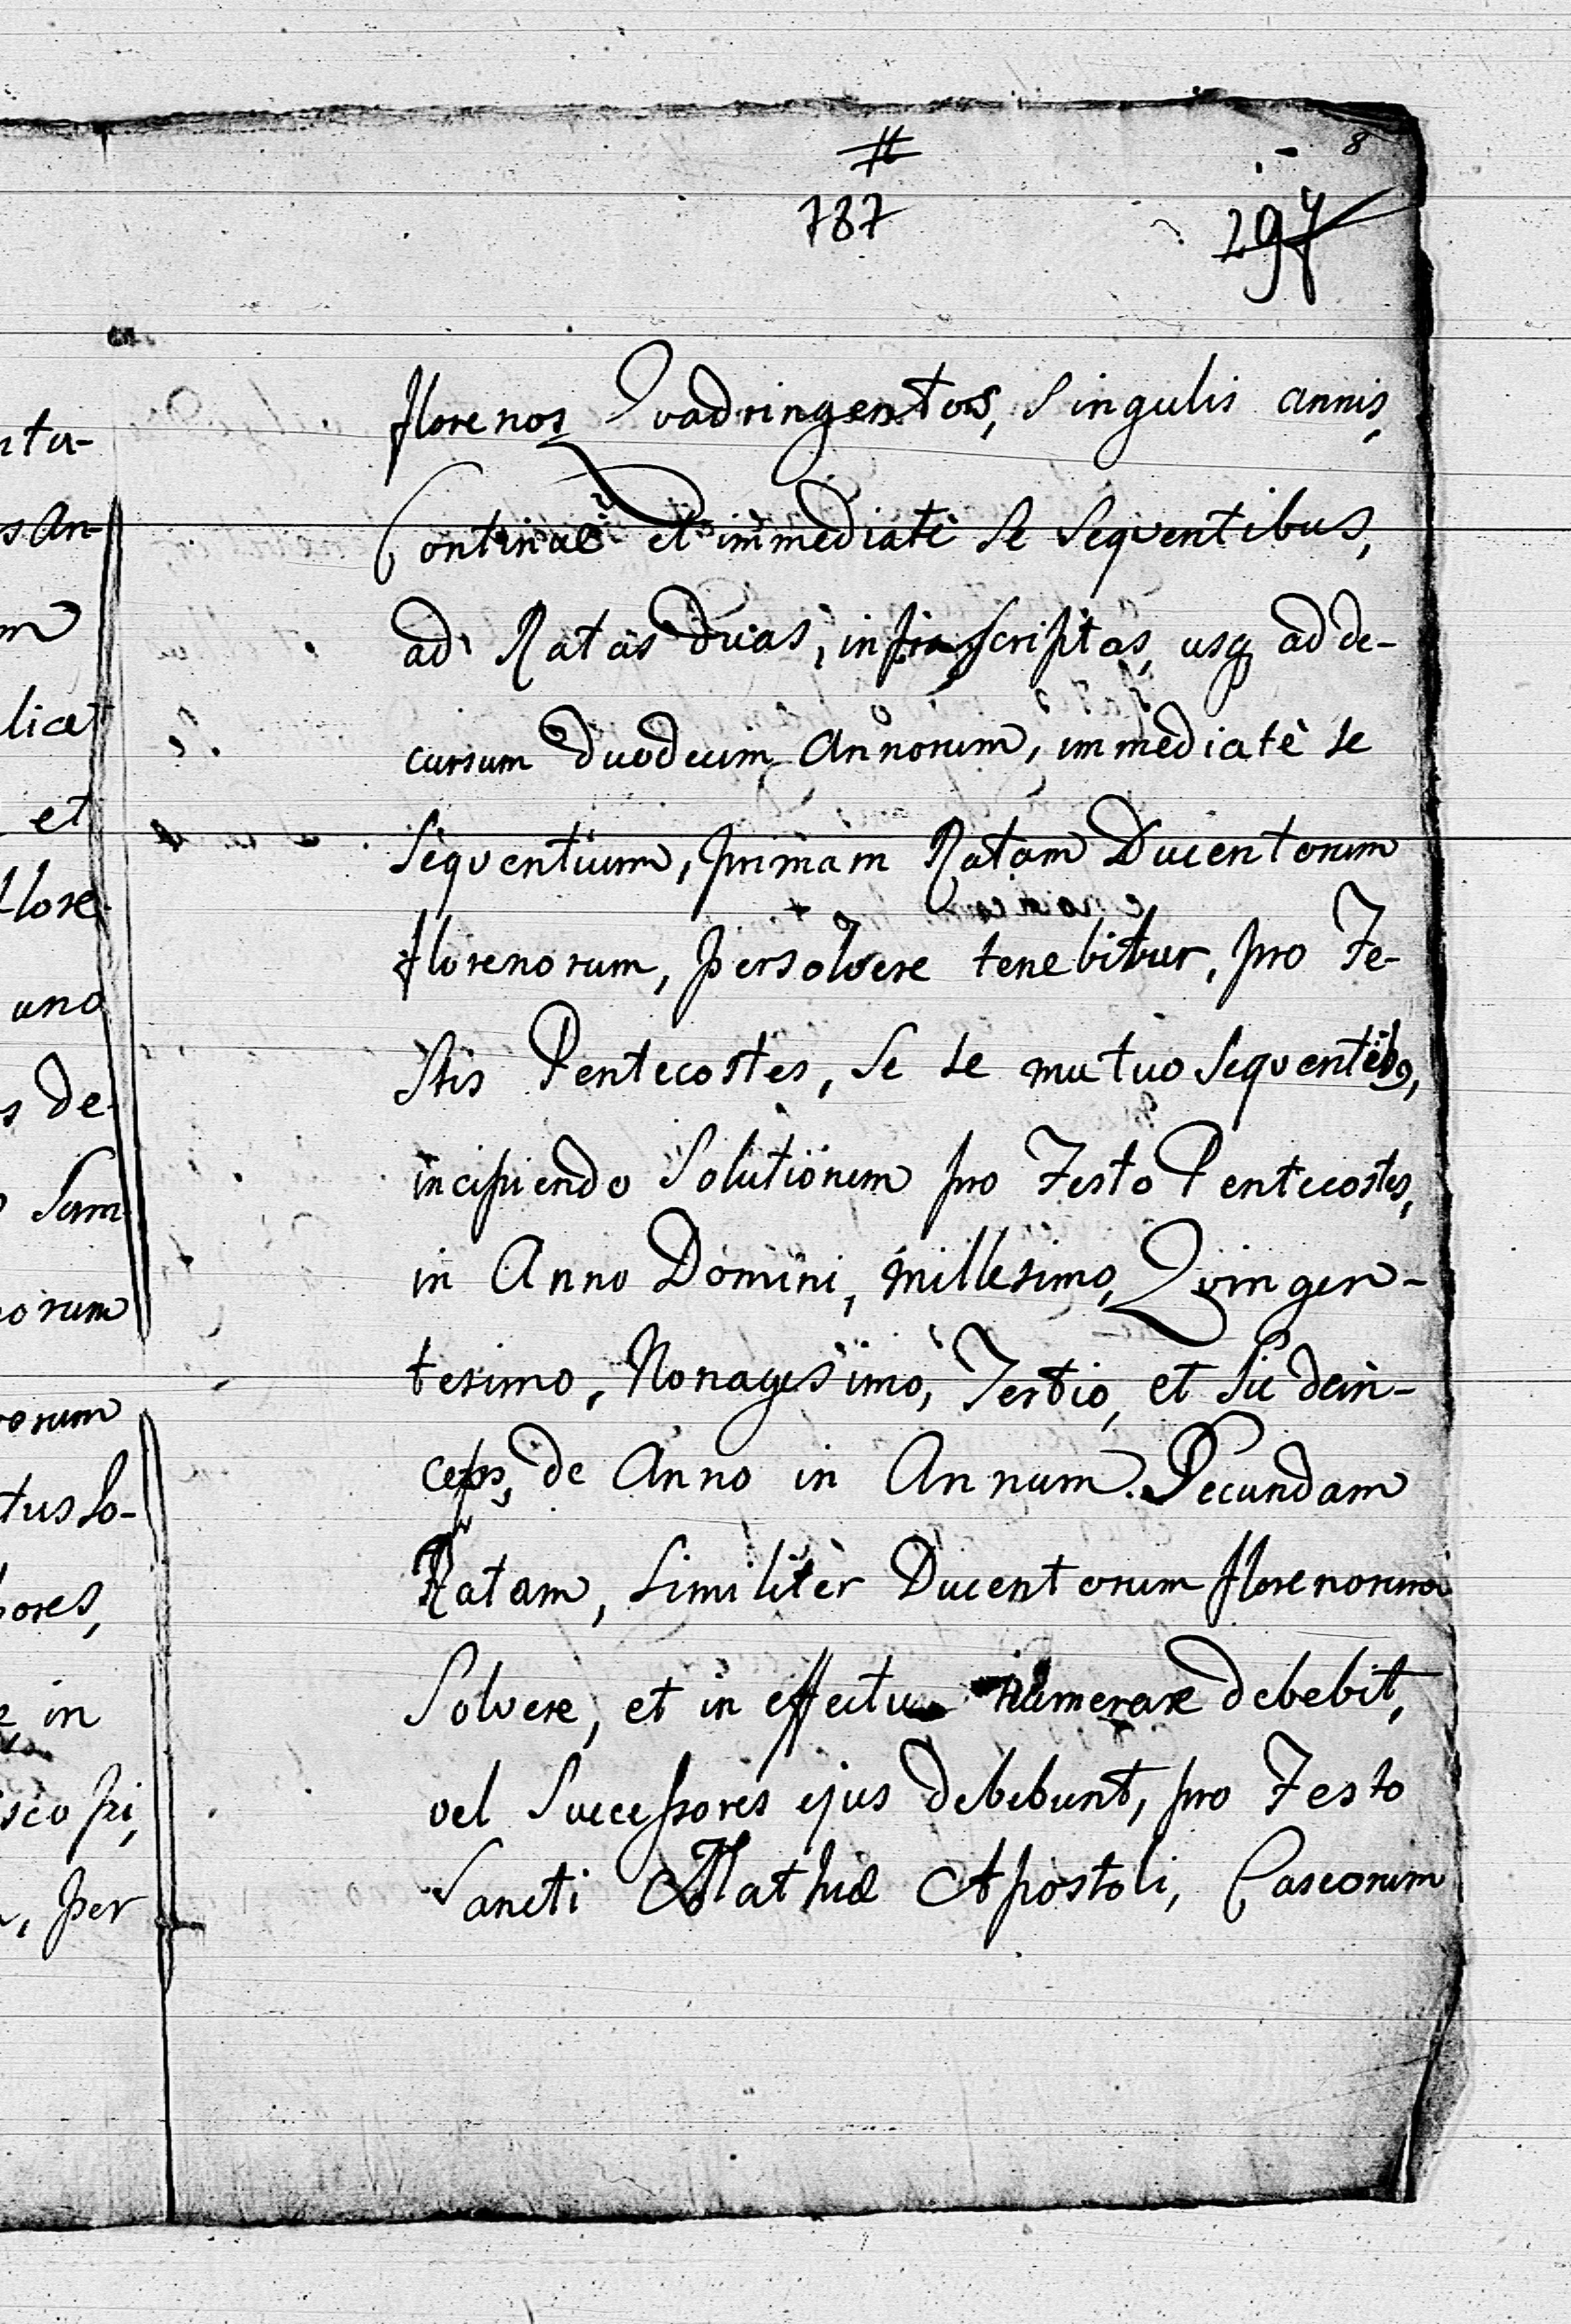 8
787
297
florenos Qvadringentos, Singulis annis,
Continuè et immediatè se seqventibus,
ad Ratas duas, infra scriptas, usq ad de-
cursum duodecim Annorum, immediatè se
seqventium, primam Ratam Ducentorum
florenorum, persolvere tenebitur, pro Fe-
stis Pentecostes, se se mutuo seqventib9,
incipiendo Solutionem pro Festo Pentecostes,
in Anno Domini, millesimo, Qvingen-
tesimo, Nonagesimo, Tertio, et sic dein-
ceps, de Anno in Annum. Secundam
Ratam, similitèr Ducentorum florenorum
Solvere, et in effectu numerare debebit,
vel Successores ejus debebunt, pro Festo
Sancti Mathiæ Apostoli, Caseorum
ntu-
s An-
m
licet
et
flore
uno
s de-
Sum
norum
vorum
tus So-
bores,
e in
iscopi,
, per